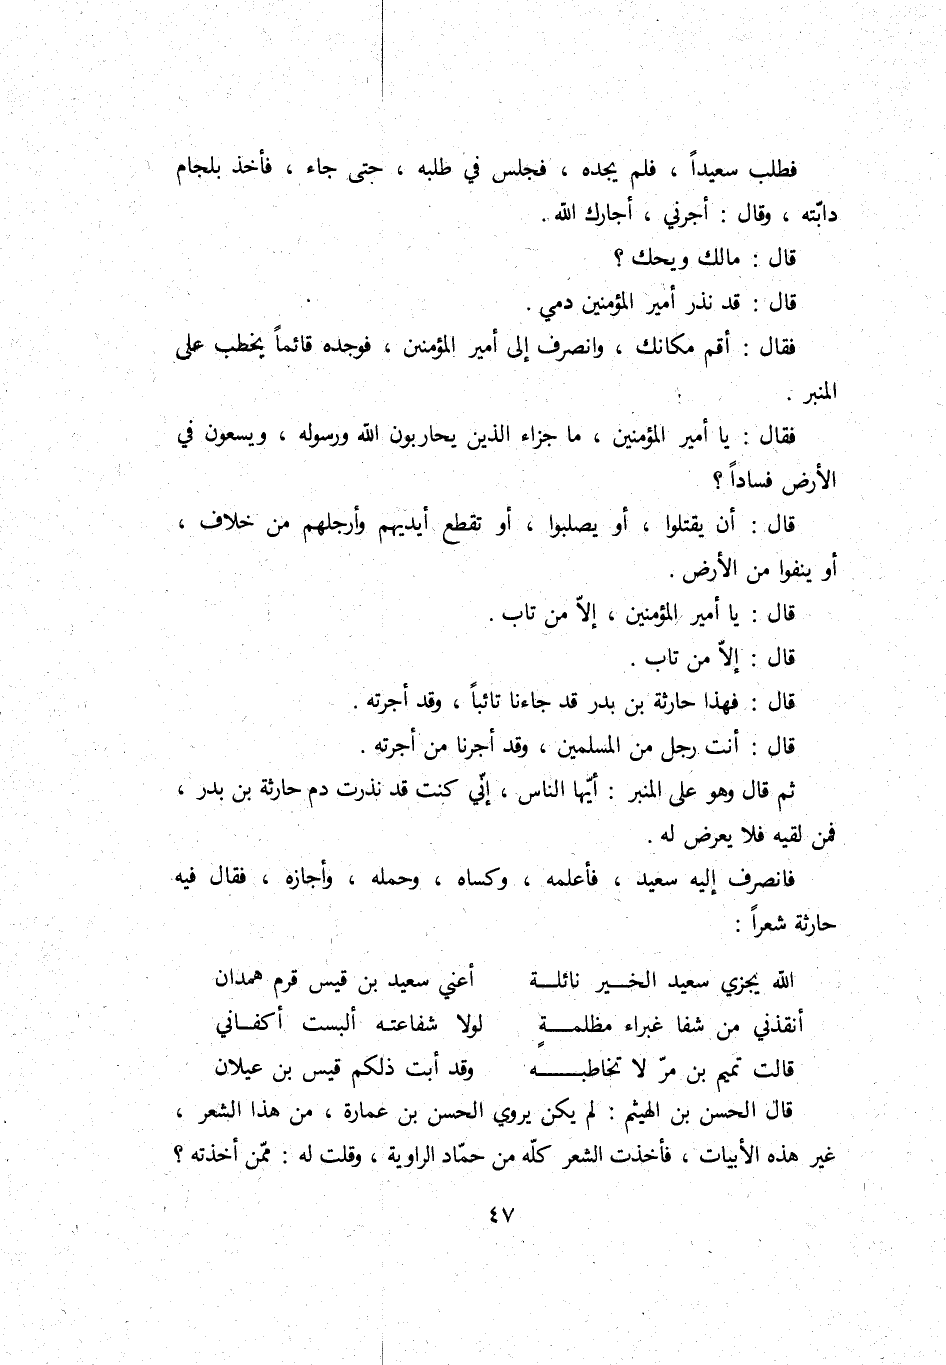 فطلب سعيداً ، فلم يجده ، فجلس في طلبه ، حتى جاء ، فأخذ بلجام
دابّته ، وقال : أجرني ، أجارك الله .
قال : مالك ويحك ؟
قال : قد نذر أمير المؤمنين دمي .
فقال : أقم مكانك ، وانصرف إلى أمير المؤمنين ، فوجده قائماً يخطب على
المنبر .
فقال : يا أمير المؤمنين ، ما جزاء الذين يحاربون الله ورسوله ، ويسعون في
الأرض فساداً ؟
قال : أن يقتلوا ، أو يصلبوا ، أو تقطع أيديهم وأرجلهم من خلاف ،
أو ينفوا من الأرض .
قال : يا أمير المؤمنين ، إلاّ من تاب .
قال : إلاّ من تاب .
قال : فهذا حارثة بن بدر قد جاءنا تائباً ، وقد أجرته .
قال : أنت رجل من المسلمين ، وقد أجرنا من أجرته .
ثم قال وهو على المنبر : أيّها الناس ، إنّي كنت قد نذرت دم حارثة بن بدر ،
فمن لقيه فلا يعرض له .
فانصرف إليه سعيد ، فأعلمه ، وكساه ، وحمله ، وأجازه ، فقال فيه
حارثة شعراً :
الله يجزي سعيد الخـــير نائلـــة أعني سعيد بن قيس قرم همدان
أنقذني من شفا غبراء مظلمـــةٍ لولا شفاعتـه ألبست أكفـاني
قالت تميم بن مرّ لا تخاطبـــــه وقد أبت ذلكم قيس بن عيلان
قال الحسن بن الهيثم : لم يكن يروي الحسن بن عمارة ، من هذا الشعر ،
غير هذه الأبيات ، فأخذت الشعر كلّه من حمّاد الراوية ، وقلت له : ممّن أخذته ؟
٤٧